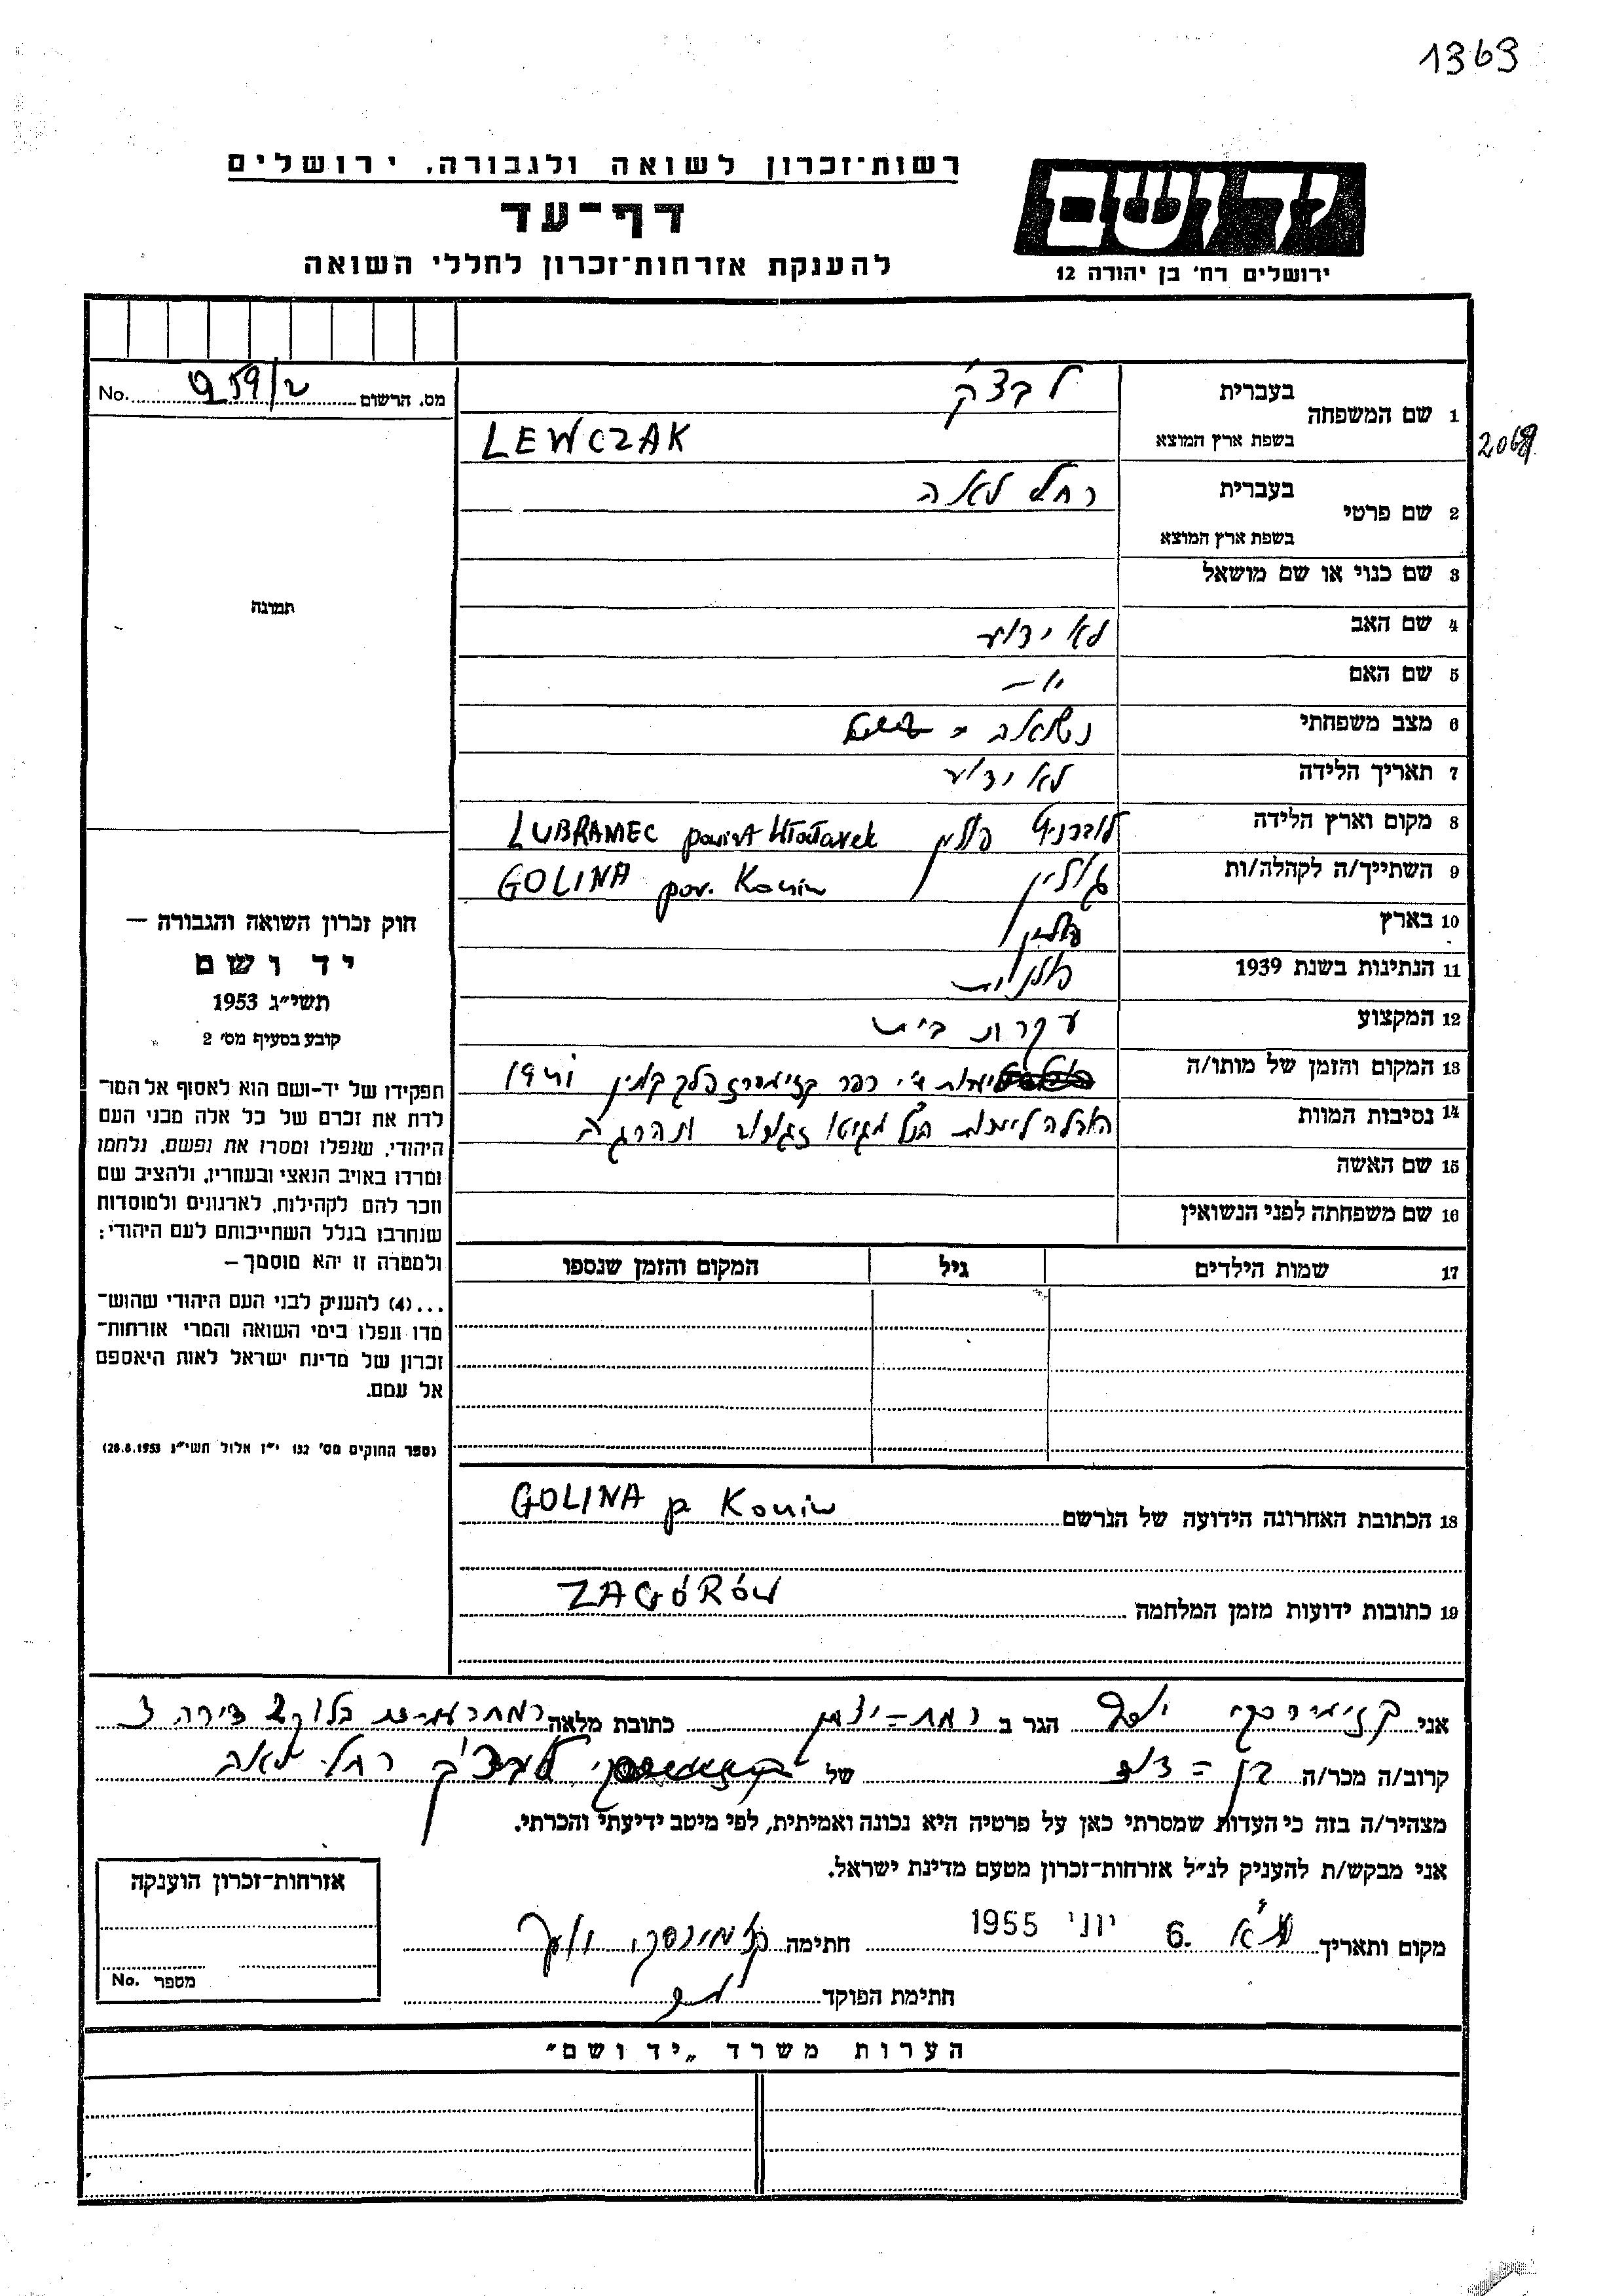 1369
רשות־זכרון לשואה ולגבורה, ירושלים
דף־עד
להענקת אזרחות־זכרון לחללי השואה
יד ושם
ירושלים רח' בן יהודה 12
מס. הרשום No.
1 שם המשפחה בעברית
בשפת ארץ המוצא LEWCZAK
2069
2 שם פרטי בעברית רחל לאה
בשפת ארץ המוצא
3 שם כנוי או שם מושאל
4 שם האב לא ידוע
5 שם האם
6 מצב משפחתי נשואה
7 תאריך הלידה לא ידוע
8 מקום וארץ הלידה פולין LUBRANIEC powiat Włocławek
9 השתייך/ה לקהלה/ות גולין GOLINA pow. Konin
10 בארץ פולין
11 הנתינות בשנת 1939 פולנית
12 המקצוע עקרת בית
13 המקום והזמן של מותו/ה יערות ע"י כפר קזימירז פלך קונין 1941
14 נסיבות המוות הובלה ליערות הנ"ל מגיטו זגורוב ונהרגה
15 שם האשה
16 שם משפחתה לפני הנשואין
17 שמות הילדים גיל המקום והזמן שנספו
תמונה
חוק זכרון השואה והגבורה –
יד ושם
תשי״ג 1953
קובע בסעיף מס' 2
תפקידו של יד־ושם הוא לאסוף אל המו־
לדת את זכרם של כל אלה מבני העם
היהודי, שנפלו ומסרו את נפשם, נלחמו
ומרדו באויב הנאצי ובעוזריו, ולהציב שם
וזכר להם לקהילות, לארגונים ולמוסדות
שנחרבו בגלל השתייכותם לעם היהודי;
ולמטרה זו יהא מוסמך –
...(4) להעניק לבני העם היהודי שהוש־
מדו ונפלו בימי השואה והמרי אזרחות־
זכרון של מדינת ישראל לאות היאספם
אל עמם.
(ספר החוקים מס' 132 י״ז אלול תשי״ג 28.8.1953)
18 הכתובת האחרונה הידועה של הנרשם GOLINA p Konin
19 כתובות ידועות מזמן המלחמה ZAGÓRÓW
אני יוסף הגר ב רמת־יצחק כתובת מלאה בלוק 2 דירה 3
קרוב/ה מכר/ה בן־דוד של רחל לאה
מצהיר/ה בזה כי העדות שמסרתי כאן על פרטיה היא נכונה ואמיתית, לפי מיטב ידיעתי והכרתי.
אני מבקש/ת להעניק לנ״ל אזרחות־זכרון מטעם מדינת ישראל.
מקום ותאריך ת"א 6. יוני 1955 חתימה
חתימת הפוקד
אזרחות־זכרון הוענקה
מספר No.
הערות משרד „יד ושם״